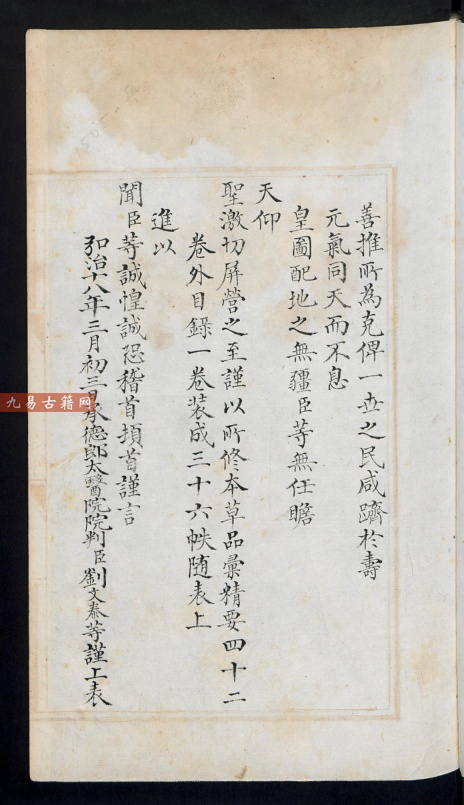 善推所為克俾一世之民咸躋於壽
元氣同天而不息
皇圖配地之無疆臣等無任瞻
天仰
聖激切屏營之至謹以所修本草品彙精要四十二
卷外目錄一卷裝成三十六帙随表上
進以
聞臣等誠惶誠恐稽首頓首謹言
弘治十八年三月初三日承德郎太醫院院判臣劉文泰等謹上表
九易古籍网